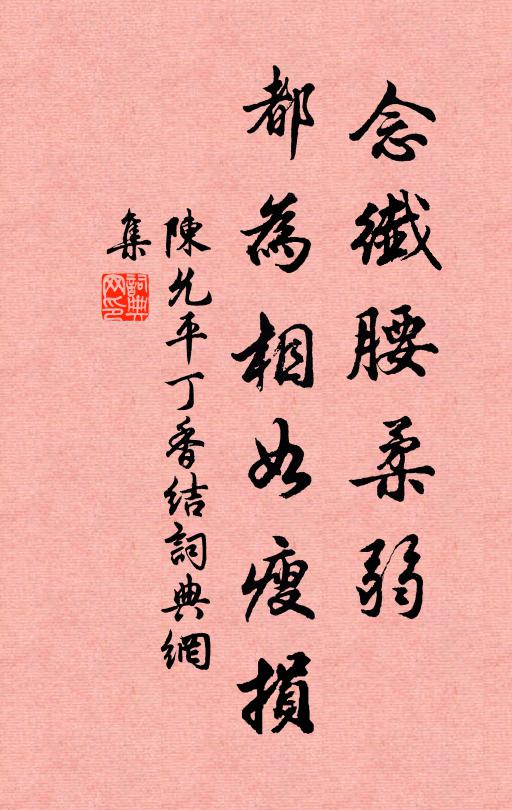 念纖腰柔弱
都為相如瘦損
陳允平丁香結詞典網
集
詞典
网印